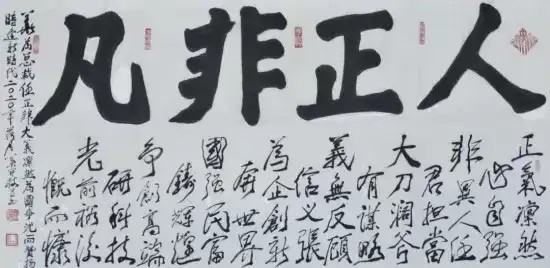 人正非凡
正氣凛然
自强
非異人任
君担當
大刀濶斧
有謀略
義無反顧
信义張
為企創新
奔世界
國强民富
鑄輝煌
争創高端
研科技
光前裕後
慨而慷
为总裁任正非大義凛然为國争
时逢新时代二〇二〇年